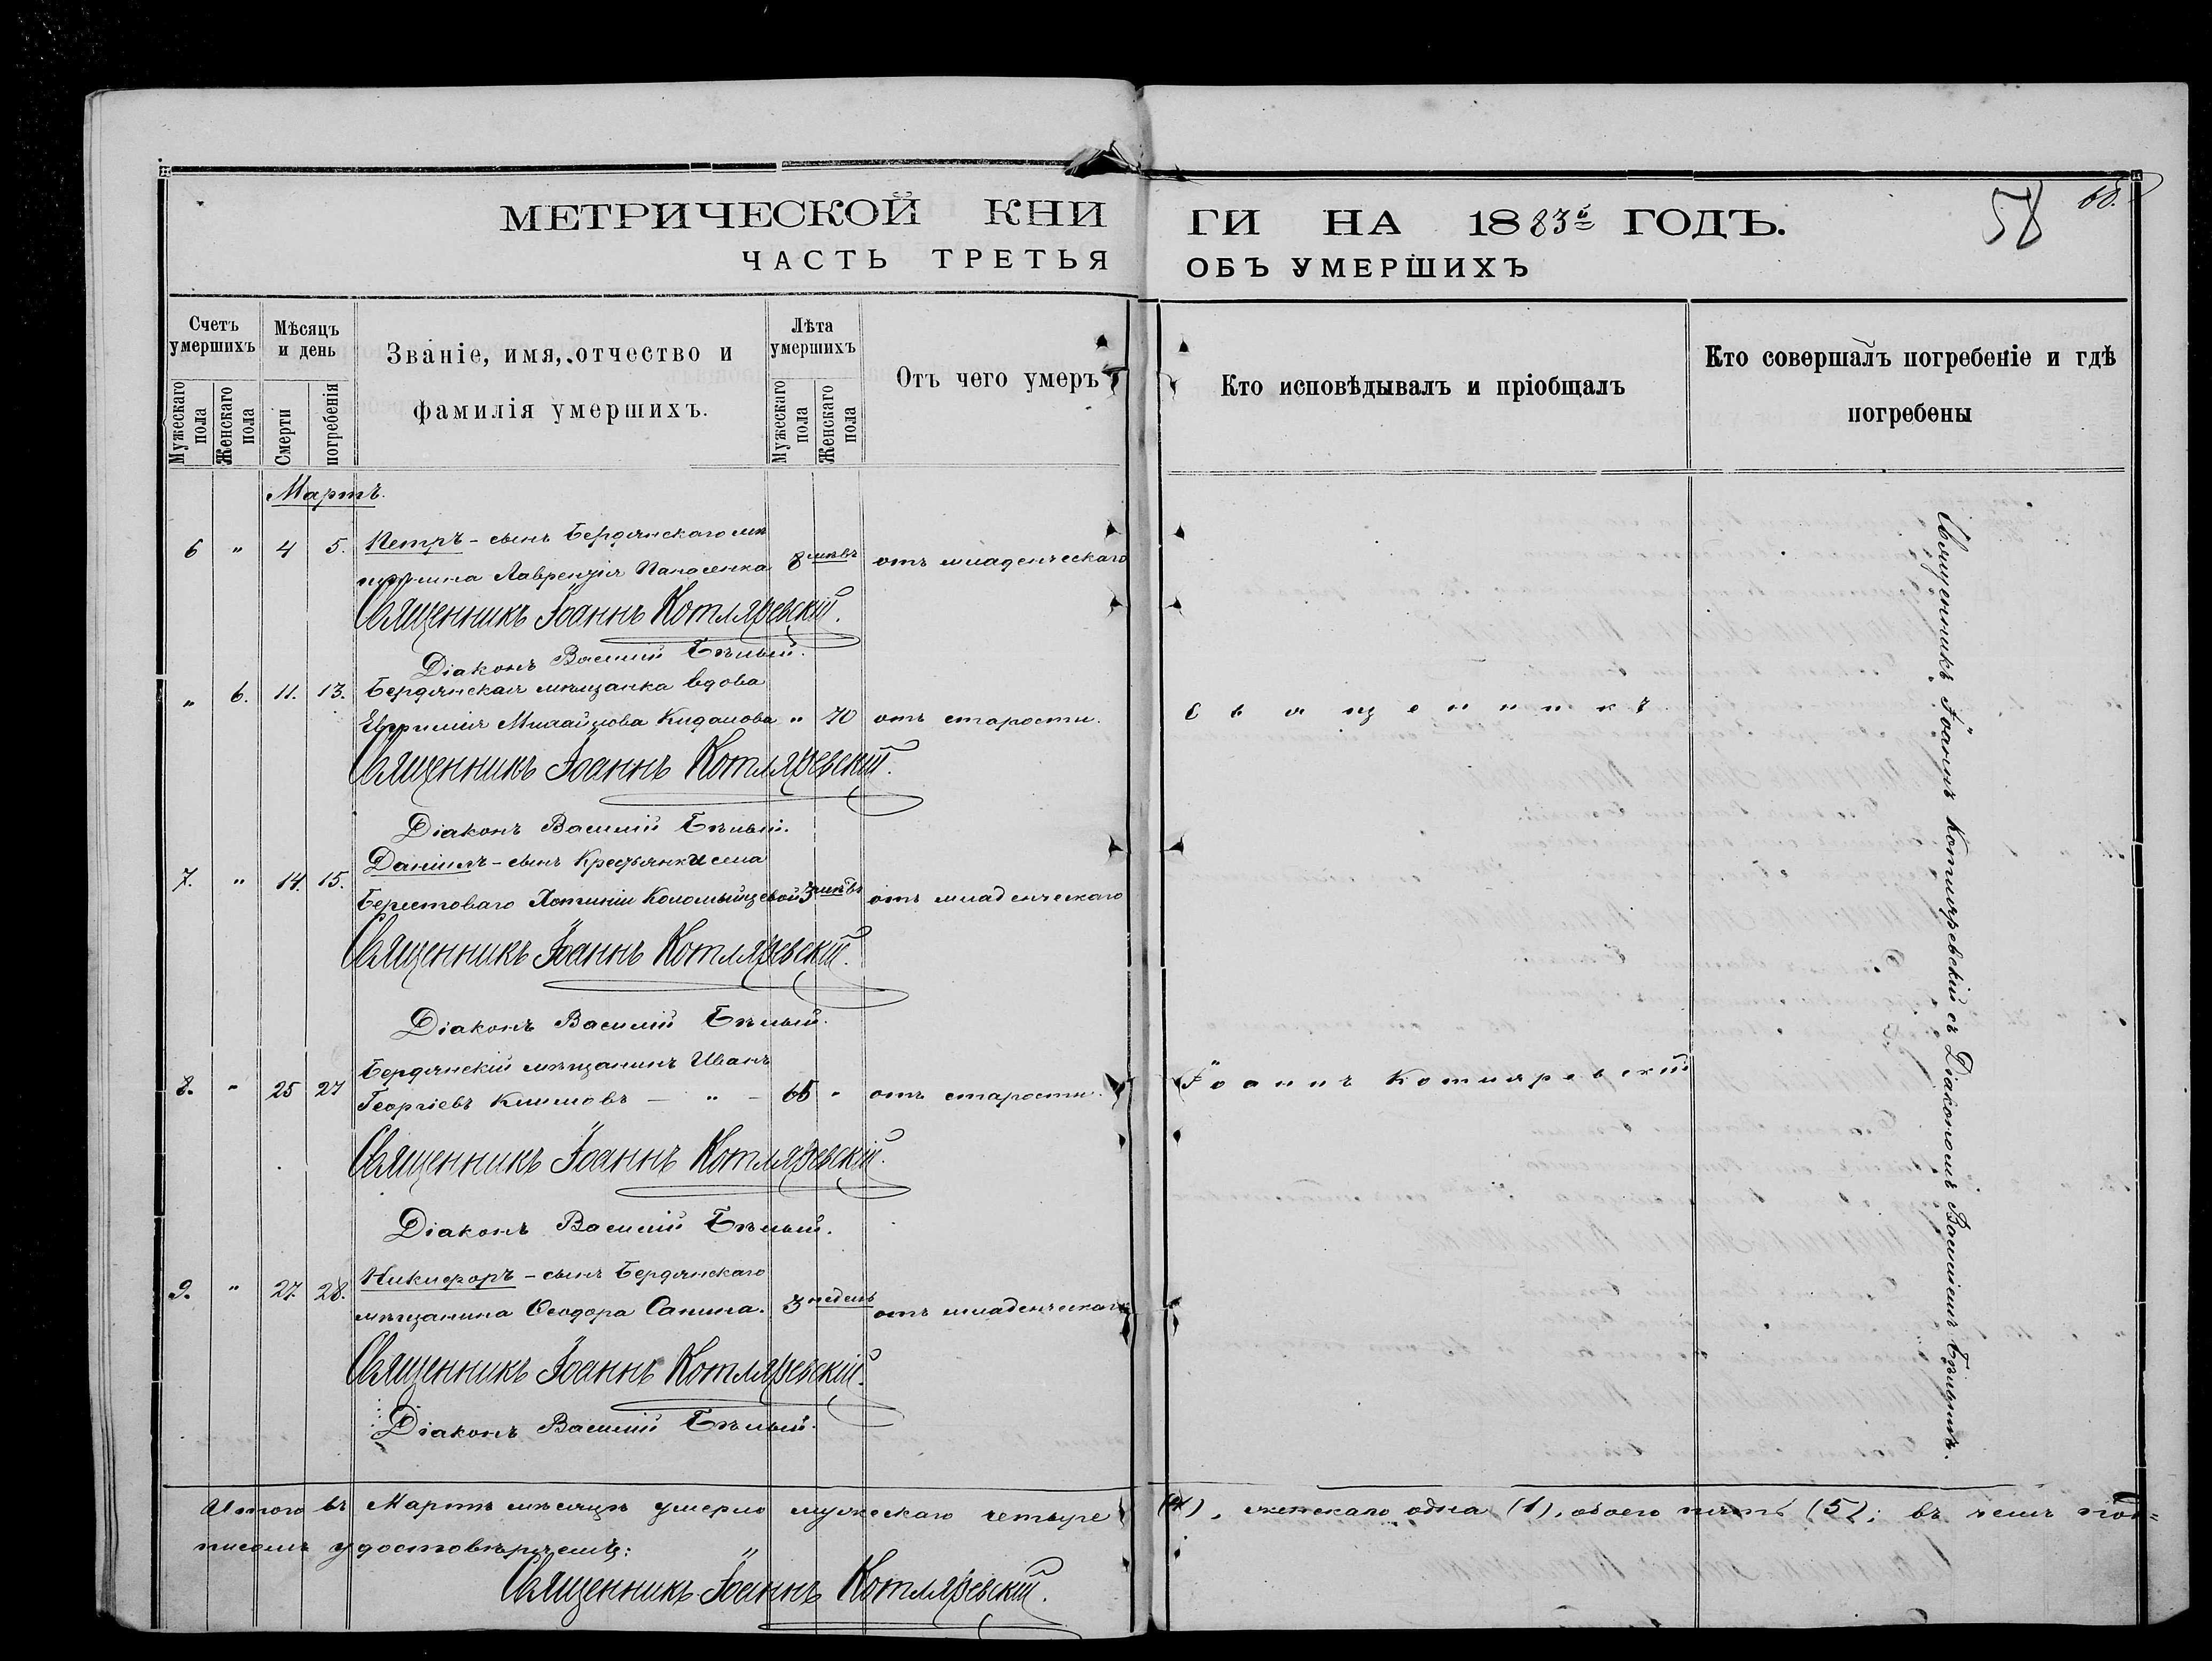 МЕТРИЧЕСКОЙ КНИ
ГИ НА 1883й ГОДЪ.
58
ЧАСТЬ ТРЕТЬЯ
ОБЪ УМЕРШИХЪ
Счетъ умершихъ
Мѣсяцъ и день
Званіе, имя, отчество и фамилія умершихъ.
Лѣта умершихъ
Отъ чего умеръ
Кто исповѣдывалъ и пріобщалъ
Кто совершалъ погребеніе и гдѣ погребены
Мужескаго пола
Женскаго пола
Смерти
погребенія
Мужескаго пола
Женскаго пола
Мартъ.
6 " 4 5. Петръ - сынъ Бердянскаго мѣ
щанина Лаврентія Панасенка 8 мѣсв отъ младенческаго
Священникъ Іоаннъ Котляревскій.
Діаконъ Василій Бѣлый.
" 6. 11. 13. Бердянская мѣщанка вдова
Евфимія Михайлова " 70 отъ старости.
Священникъ Іоаннъ Котляревскій.
Діаконъ Василій Бѣлый.
7. " 14. 15. Даніилъ - сынъ Крестьянки села
Берестоваго Хотиніи Коломыйцевой 3 отъ младенческаго
Священникъ Іоаннъ Котляревскій.
Діаконъ Василій Бѣлый.
8. " 25 27 Бердянскій мѣщанинъ Иванъ
Георгіевъ Климовъ — " — 65 " отъ старости.
Священникъ Іоаннъ Котляревскій.
Діаконъ Василій Бѣлый.
9. " 27. 28. Никифоръ - сынъ Бердянскаго
мѣщанина Ѳеодора Сапина. 3 недель отъ младенческаго
Священникъ Іоаннъ Котляревскій.
Діаконъ Василій Бѣлый.
Священникъ
Іоаннъ Котляревскій
Священникъ Іоаннъ Котляревскій съ Діакономъ Василіемъ Бѣлымъ.
Итого въ Мартѣ мѣсяцѣ умерло мужескаго четыре (4), женскаго одна (1), обоего пять (5); въ чемъ под=
писомъ удостовѣряемъ:
Священникъ Іоаннъ Котляревскій.